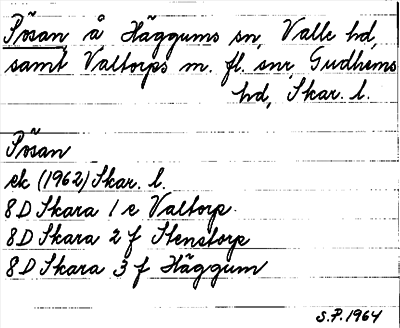 Pösan, å Häggums sn, Valle hd,
samt Valtorps m. fl. snr, Gudhems
hd, Skar. l.
Pösan
ek (1962) Skar. l.
8D Skara 1 e Valtorp
8D Skara 2 f Stenstorp
8D Skara 3 f Häggum
S.P. 1964